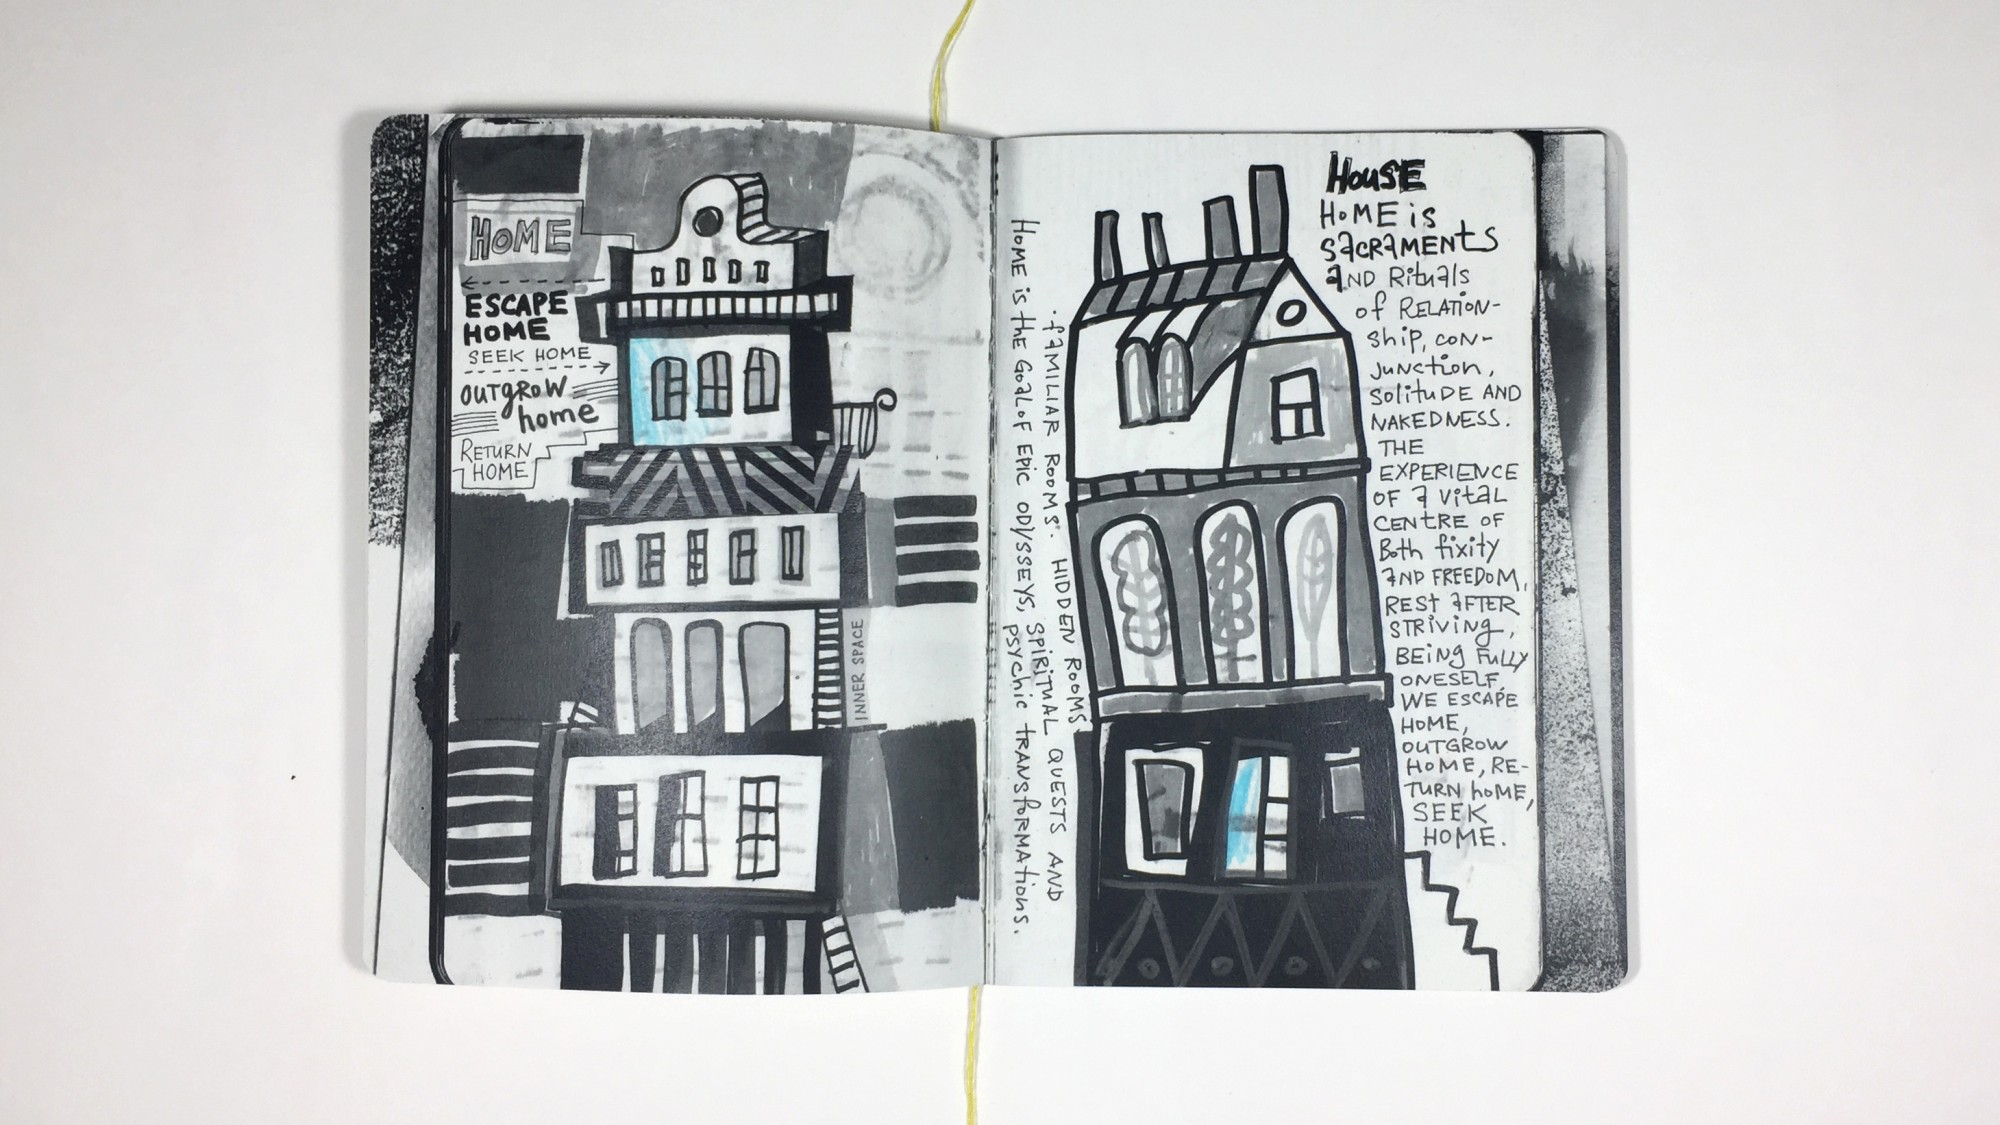 HOME
ESCAPE
HOME
SEEK HOME
OUTGROW
home
RETURN
HOME
INNER SPACE
Home is the Goal of Epic odysseys, spiritual quests and
psychic transformations.
·familiar rooms· Hidden rooms
HOUSE
HOME is
SacramENts
and Rituals
of Relation-
ship, con-
junction,
solitude and
NAKEDNESS.
THE
EXPERIENCE
OF a Vital
CENTRE OF
Both fixity
and FREEDOM,
REST aFTER
STRIVING,
BEING FULLY
ONESELF.
WE ESCAPE
HOME,
OUTGROW
HOME, RE-
TURN home,
SEEK
HOME.